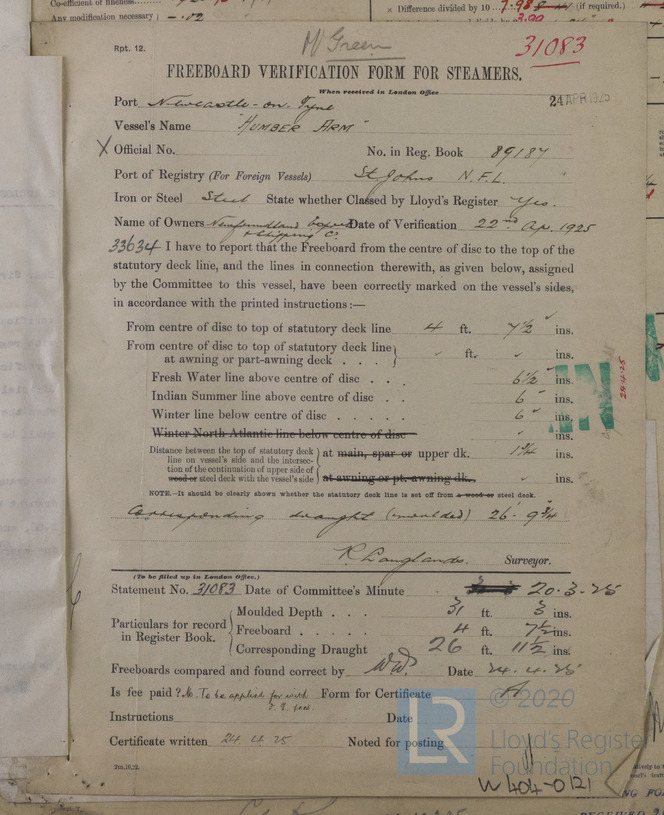 Co-efficient of fineness.
Any modification necessary
× Difference divided by 10 (if required.)
Rpt. 12.
Mr Green
31083
FREEBOARD VERIFICATION FORM FOR STEAMERS.
When received in London Office
24 APR 1925
Port Newcastle-on-Tyne
Vessel's Name "HUMBER ARM"
X Official No. No. in Reg. Book 89187
Port of Registry (For Foreign Vessels) St Johns N.F.L.
Iron or Steel Steel State whether Classed by Lloyd's Register Yes.
Name of Owners Newfoundland Export & Shipping Co. Date of Verification 22nd Ap. 1925
33634 I have to report that the Freeboard from the centre of disc to the top of the
statutory deck line, and the lines in connection therewith, as given below, assigned
by the Committee to this vessel, have been correctly marked on the vessel's sides,
in accordance with the printed instructions:—
From centre of disc to top of statutory deck line 4 ft. 7½ ins.
From centre of disc to top of statutory deck line
at awning or part-awning deck . . . ft. ins.
Fresh Water line above centre of disc . . . 6½ ins.
Indian Summer line above centre of disc . . 6 ins.
Winter line below centre of disc . . . . . 6 ins.
Winter North Atlantic line below centre of disc ins.
Distance between the top of statutory deck
line on vessel's side and the intersec-
tion of the continuation of upper side of
wood or steel deck with the vessel's side
at main, spar or upper dk. 1¾ ins.
at awning or pt. awning dk. ins.
NOTE.—It should be clearly shown whether the statutory deck line is set off from a wood or steel deck.
Corresponding draught (moulded) 26-9¾
R. Langlands. Surveyor.
24.4.25
(To be filled up in London Office.)
Statement No. 31083 Date of Committee's Minute 20.3.25
Particulars for record
in Register Book.
Moulded Depth . . . 31 ft. 3 ins.
Freeboard . . . . . 4 ft. 7½ ins.
Corresponding Draught 26 ft. 11½ ins.
Freeboards compared and found correct by WW. Date 24.4.25
Is fee paid? No. To be applied for with Form for Certificate A
Instructions Date
Certificate written 24.4.25 Noted for posting
2m,10,12.
LR
© 2020
Lloyd's Register
Foundation
W404-0121